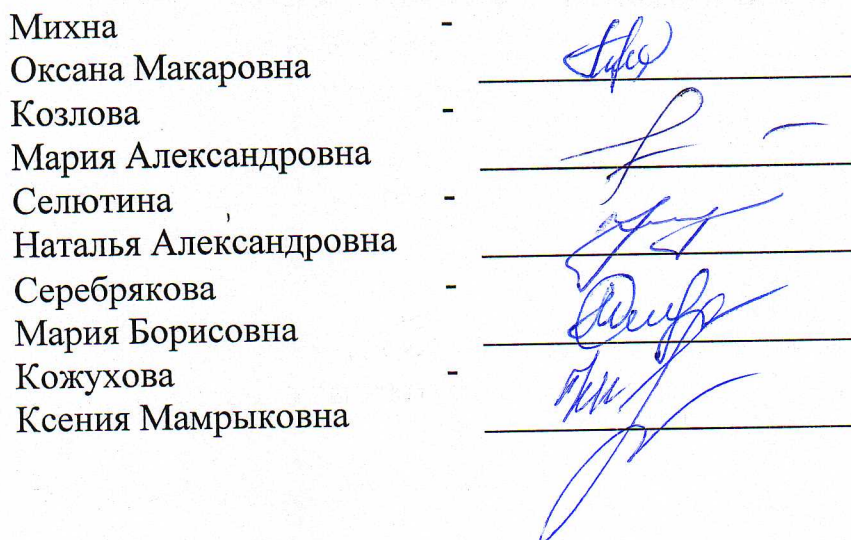 Михна -
Оксана Макаровна
Козлова -
Мария Александровна
Селютина -
Наталья Александровна
Серебрякова -
Мария Борисовна
Кожухова -
Ксения Мамрыковна